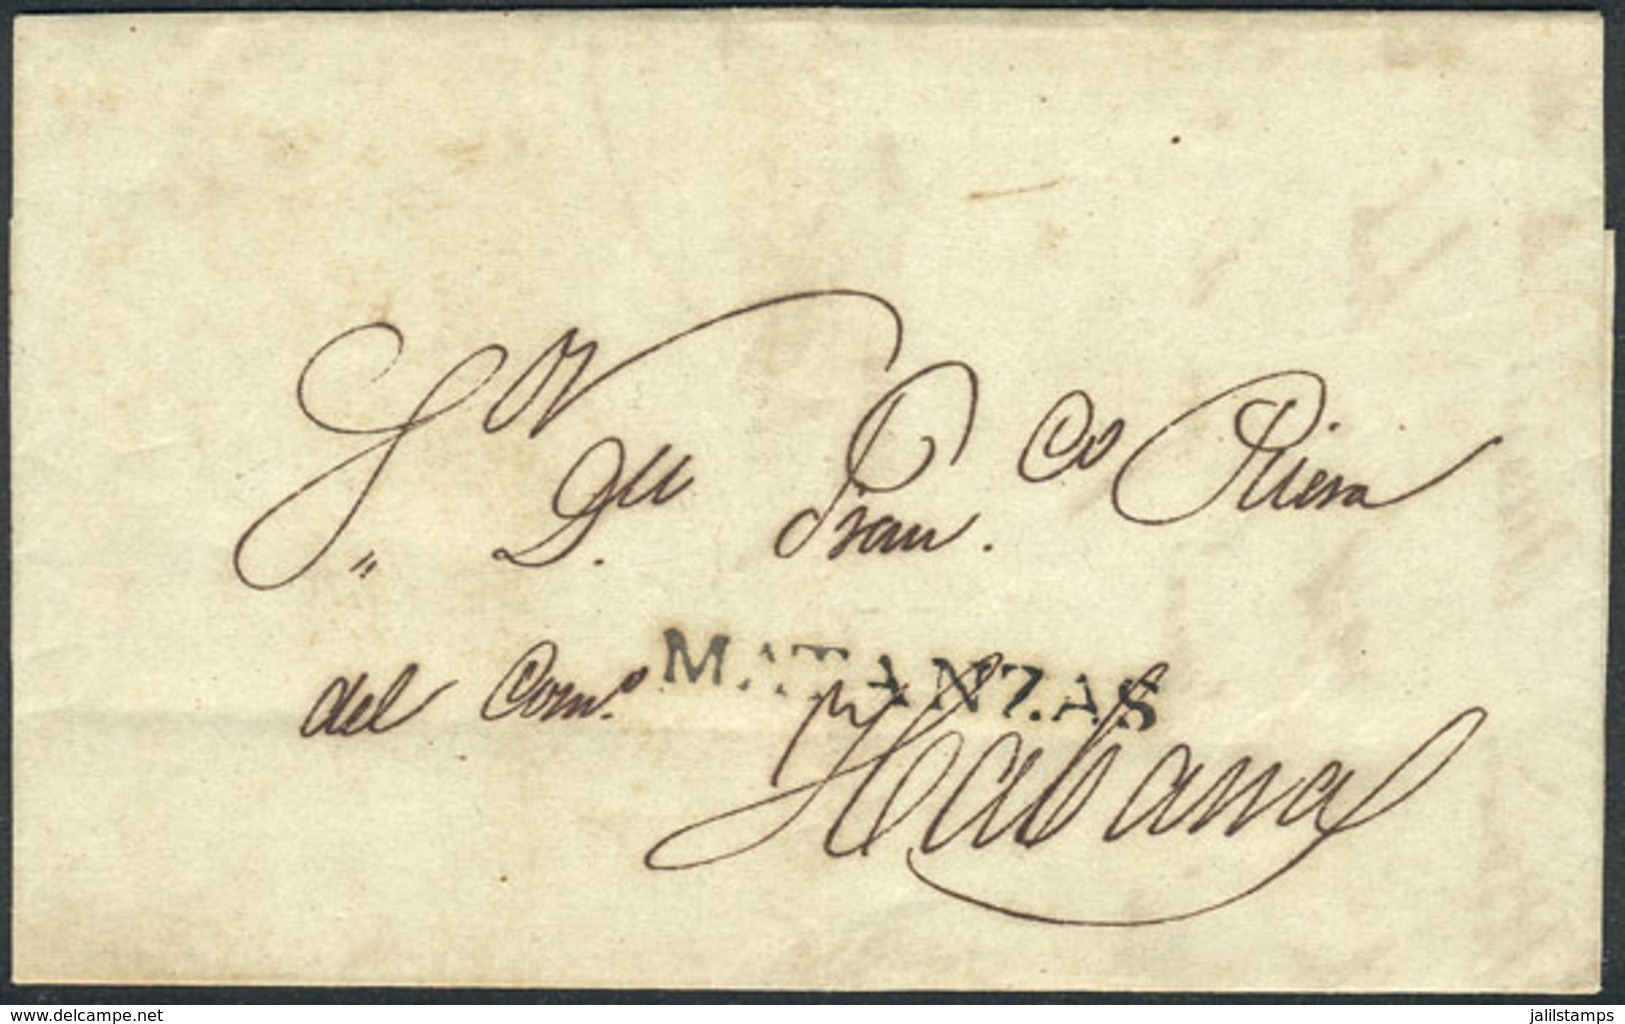 S.or D.n Fran.co Riera
del Com.o
MATANZAS
Habana
delcampe.net
jalilstamps